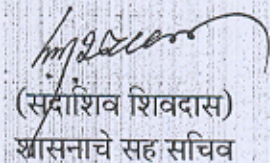 (सदाशिव शिवदास)
शासनाचे सह सचिव